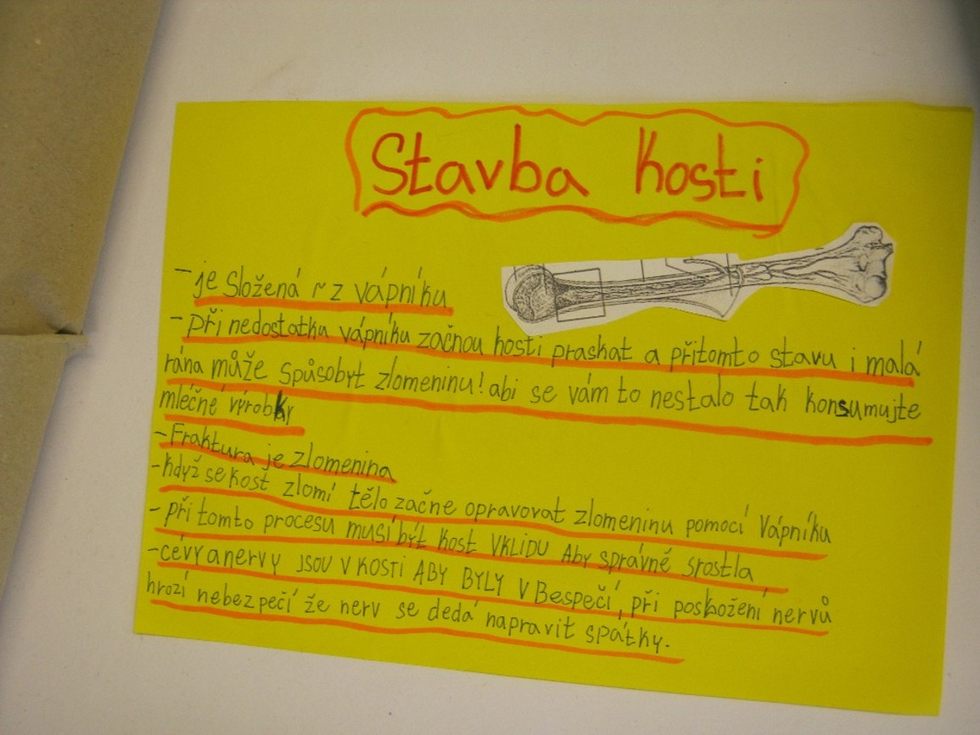 Stavba kosti
- je složená z vápníku
- při nedostatku vápníku začnou kosti praskat a přitomto stavu i malá
rána může spůsobyt zlomeninu! abi se vám to nestalo tak konsumujte
mléčné výrobky
- Fraktura je zlomenina
- když se kost zlomí tělo začne opravovat zlomeninu pomocí vápníku
- při tomto procesu musí být kost VKLIDU Aby správně srostla
- cévy a nervy JSOU V KOSTI ABY BYLY V Bespečí, při poskození nervů
hrozí nebezpečí že nerv se dedá napravit spátky.